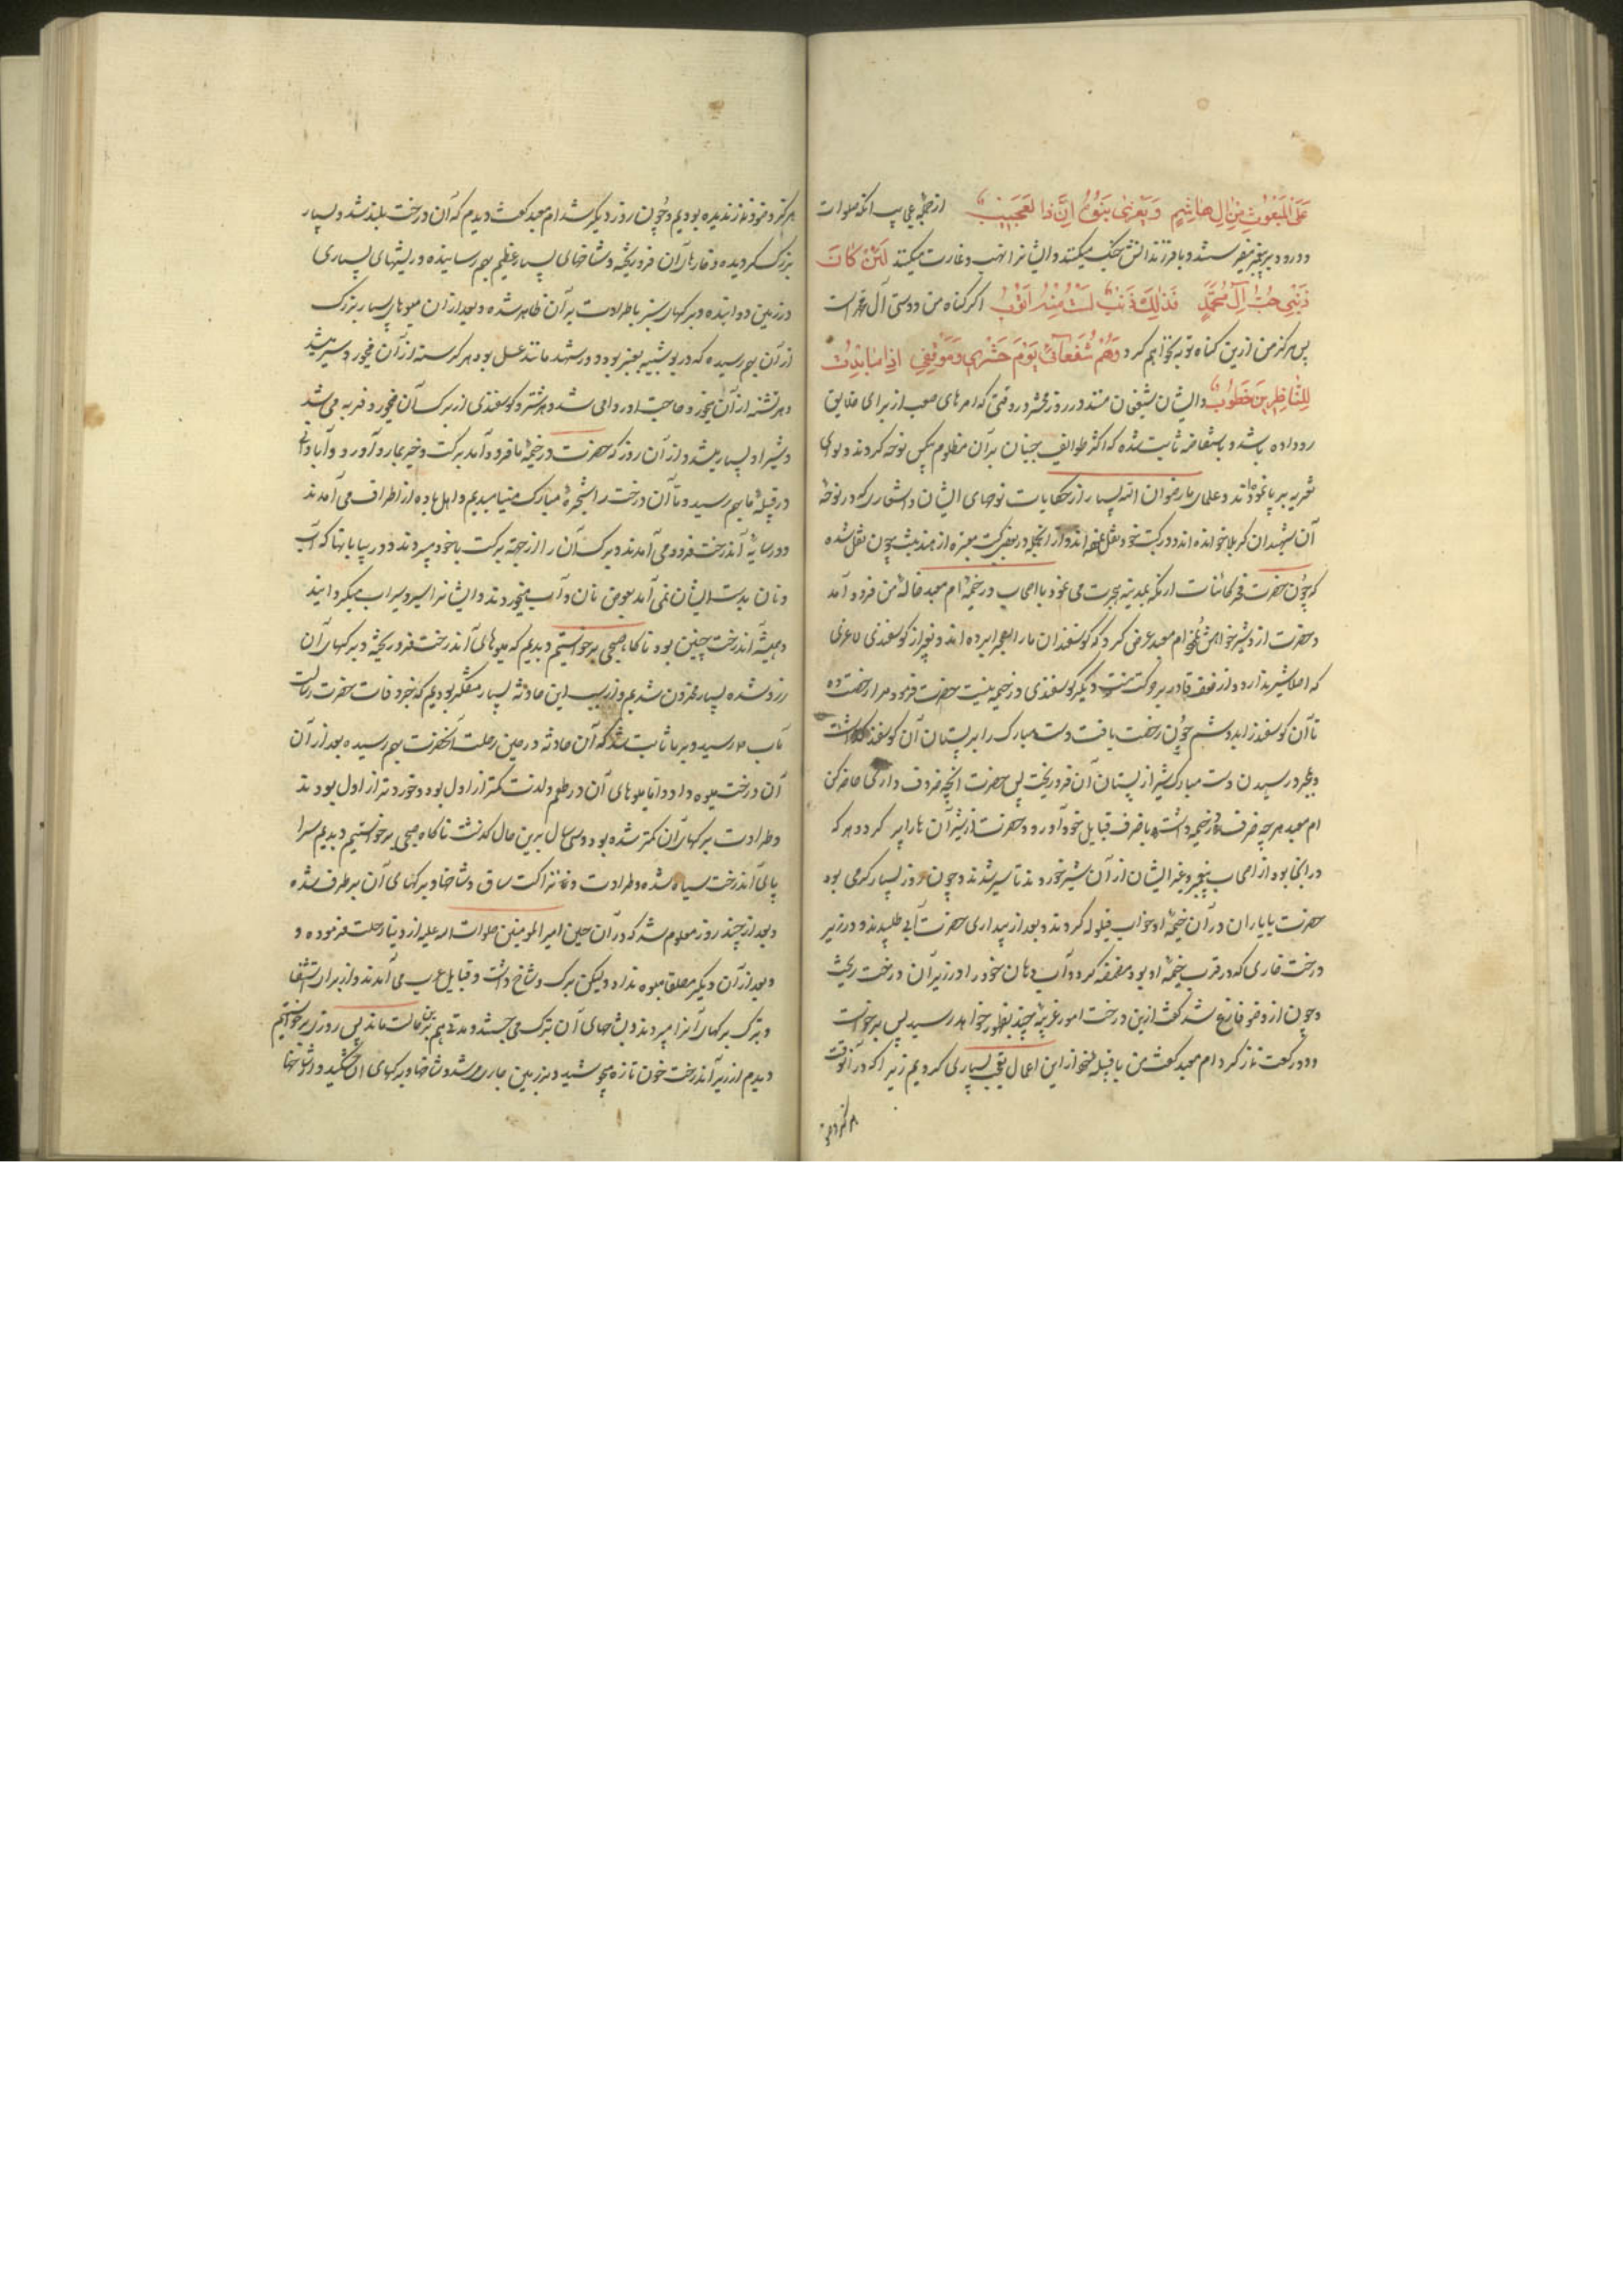 عَلَی المَبْعُوثِ مِنْ آلِ هَاشِمٍ وَیُغْزی بَنُوهُ اِنَّ ذا لَعَجِیبٌ از جمله عجایب آنکه صلوات
و درود بر پیغمبر میفرستند و با فرزندانش جنگ میکنند و ایشانرا نهب و غارت میکنند لَئِنْ کَانَ
ذَنْبِی حُبُّ آلِ مُحَمَّدٍ فَذٰلِکَ ذَنْبٌ لَسْتُ مِنْهُ اَتُوبُ اکر کناه من دوستی آل محمد است
پس هرکز من ازین کناه توبه نخواهم کرد و هُمْ شُفَعَآئِی یَوْمَ حَشْرِی وَمَوْقِفِی اذا ما بَدَتْ
لِلنَّاظِرِینَ خُطُوبٌ و ایشان شفیعان منند در روز محشر در وقتی که امرهای صعب از برای خلایق
رو داده باشد و باستفاضه ثابت شده که اکثر طوایف جنیان بر آن مظلوم بیکس نوحه کردند و بوی
تعزیه بر پا نموده‌اند و علمای ما رضوان الله بسیار از حکایات نوحهای ایشان و اشعاری که در نوحهٔ
آن شهیدان کربلا خوانده اند در کتب خود نقل نموده اند و از آنجمله در بعضی کتب معتبره از هند بنت جون نقل شده
که چون حضرت فخر کائنات از مکه بمدینه هجرت می نمود با اصحاب در خیمهٔ ام معبد خالهٔ من فرود آمد
و حضرت از و شیر خواهش نمود ام معبد عرض کرد که کوسفندان ما را بچرا برده اند و بغیر از کوسفندی لاغری
که اصلا شیر ندارد و از ضعف قادر بر حرکت نیست دیگر کوسفندی در خیمه نیست حضرت فرمود مرا رخصت ده
تا آن کوسفند را بدوشم چون رخصت یافت دست مبارک را بر پستان آن کوسفند گذاشت
و بمجرد رسیدن دست مبارک شیر از پستان آن فرو ریخت پس حضرت آنچه ظروف داری حاضر کن
ام معبد هر چه ظرف در خیمه داشت با ظرف قبایل خود آورد و حضرت از شیر آن ها را پر کرد و هر که
در آنجا بود از اصحاب پیغمبر و غیر ایشان از آن شیر خوردند تا سیر شدند و چون روز بسیار کرمی بود
حضرت با یاران در آن خیمهٔ او خواب قیلوله کردند و بعد از بیداری حضرت آبی طلبیدند و در زیر
درخت خاری که در قرب خیمهٔ او بود مضمضه کرد و آب دهان خود را در زیر آن درخت ریخت
و چون از وضو فارغ شد کفت ازین درخت امور غریبه چند بظهور خواهد رسید پس برخواست
و دو رکعت نماز کرد ام معبد کفت من با قبیله خود از این اعمال تعجب بسیاری کردیم زیرا که در آنوقت
هر کز وضو
هر کز وضو و نماز ندیده بودیم و چون روز دیگر شد ام معبد کفت دیدم که آن درخت بلند شد و بسیار
بزرک کردیده و خارهای آن فرو ریخته و شاخهای بسیار عظیم بهم رسانیده و ریشهای بسیاری
در زمین دوانیده و برکهای سبز با طراوت بر آن ظاهر شده و بعد از آن میوهای بسیار بزرک
از آن بهم رسیده که در بو شبیه بعنبر بود و در شهد مانند عسل بود هر کرسنه از آن میخورد سیر میشد
و هر تشنه از آن میخورد و حاجت او روا می شد و هر شتر و کوسفندی از برک آن میخورد فربه می شد
و شیر او بسیار میشد و از آن روز که حضرت در خیمهٔ ما فرود آمد برکت و خیر بما رو آورد و آبادانی
در قبیلهٔ ما بهم رسید و ما آن درخت را شجرهٔ مبارکه مینامیدیم و اهل بادیه از اطراف می آمدند
و در سایهٔ آندرخت فرود می آمدند و برک آن را از جهة برکت با خود میبردند و در بیابانها که آب
و نان بدست ایشان نمی آمد بعوض نان و آب میخوردند و ایشانرا سیر و سیراب میکردانید
و همیشه آندرخت چنین بود تا کاه صبحی برخواستیم دیدیم که میوهای آندرخت فرو ریخته و برکهای آن
زرد شده بسیار محزون شدیم و از سبب این حادثه بسیار متفکر بودیم که خبر وفات حضرت رسالت
مآب بما رسید و بر ما ثابت شد که آن حادثه در حین رحلت آنحضرت بهم رسیده بعد از آن
آن درخت میوه داد و اما میوهای آن در طعم و لذت کمتر از اول بود و خوردتر از اول بودند
و طراوت برکهای آن کمتر شده بود و سی سال برین حال کذشت ناکاه صبحی برخواستیم دیدیم سرا
پای آندرخت سیاه شده و طراوت و نزاکت ساق و شاخها و برکهای آن بر طرف شده
و بعد از چند روز معلوم شد که در آن حین امیر المومنین صلوات الله علیه از دنیا رحلت فرموده و
و بعد از آن دیگر مطلقا میوه نداد و لیکن برک و شاخ داشت و قبایل عرب می آمدند و از برای استشفا
و تبرک برکهای آنرا میبردند و بشاخهای آن تبرک می جستند و مدتی هم برین حالت ماند پس روزی برخواستیم
دیدم از زیر آندرخت خون تازه میجوشید و بر زمین جاری و شد و شاخها و برکهای آن خشکید و از شاخها